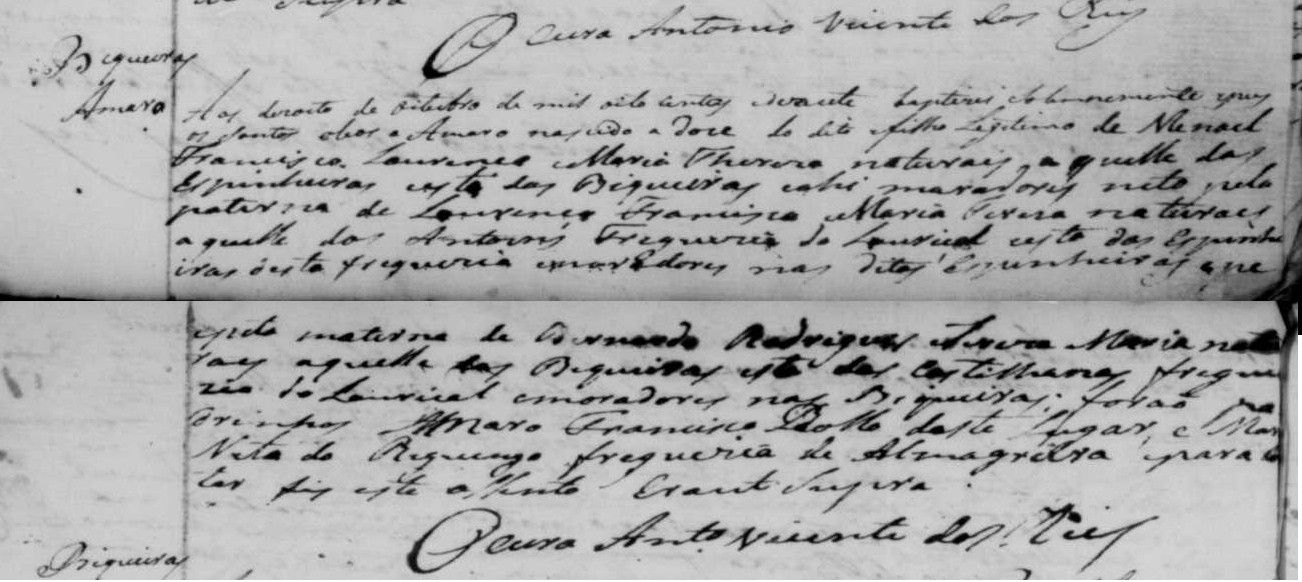 Supra
O Cura Antonio Vicente dos Reis
Biqueiras
Amaro
Aos dezoito de Oitubro de mil oito centos evinte baptizei solemnemente epus
os Santos oleos a Amaro nascido a doze do dito filho Legitimo de Manoel
Francisco Lourenco e Maria Thereza naturais, aquelle das
Espinheiras eesta das Biqueiras eahi moradores neto pela
paterna de Lourenço Francisco e Maria Tereza naturaes
aquelle dos Antoens Freguezia do Lourical eesta das Espinhe
iras desta freguezia emoradores nas ditas Espinheiras, e pe
materna de Bernardo Rodrigues e Tereza Maria natu
raes aquelle das Biqueiras esta das Castilhanas fregue
zia do Lourical emoradores nas Biqueiras; forão Pa
drinhos Amaro Francisco deste Lugar, e Mar
Neta do freguezia de Almagreira epara
tar fis este assento Eraut Supra
O Cura Anto. Vicente dos Reis
Biqueiras